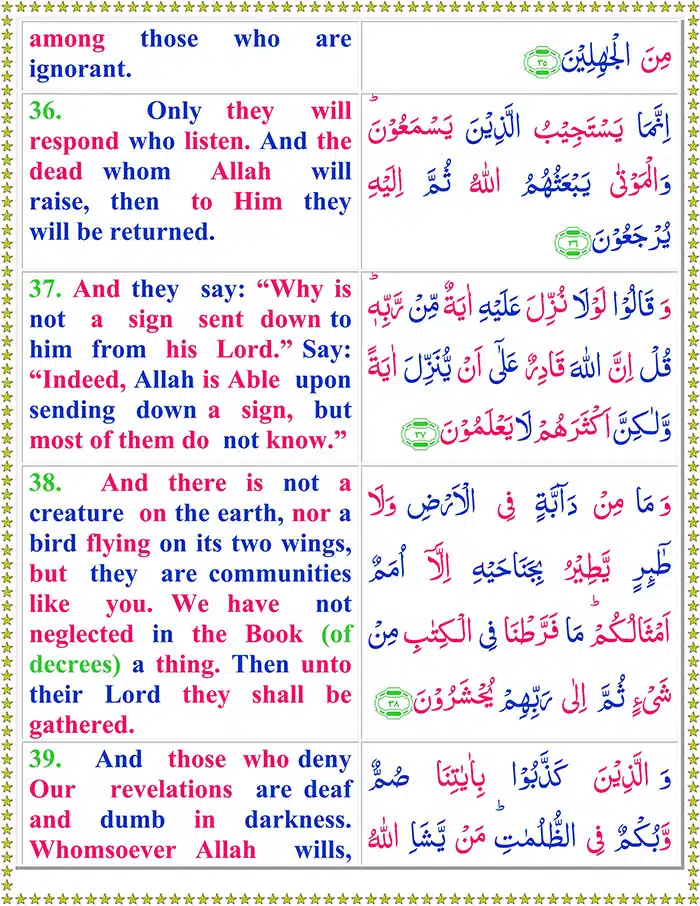 among those who are
ignorant.
مِنَ الْجٰهِلِيْنَ ۝۳۵
36. Only they will
respond who listen. And the
dead whom Allah will
raise, then to Him they
will be returned.
اِنَّمَا يَسْتَجِيْبُ الَّذِيْنَ يَسْمَعُوْنَ ؕ
وَالْمَوْتٰى يَبْعَثُهُمُ اللّٰهُ ثُمَّ اِلَيْهِ
يُرْجَعُوْنَ ۝۳۶
37. And they say: “Why is
not a sign sent down to
him from his Lord.” Say:
“Indeed, Allah is Able upon
sending down a sign, but
most of them do not know.”
وَ قَالُوْا لَوْلَا نُزِّلَ عَلَيْهِ اٰيَةٌ مِّنْ رَّبِّهٖ ؕ
قُلْ اِنَّ اللّٰهَ قَادِرٌ عَلٰٓى اَنْ يُّنَزِّلَ اٰيَةً
وَّلٰـكِنَّ اَكْثَرَهُمْ لَا يَعْلَمُوْنَ ۝۳۷
38. And there is not a
creature on the earth, nor a
bird flying on its two wings,
but they are communities
like you. We have not
neglected in the Book (of
decrees) a thing. Then unto
their Lord they shall be
gathered.
وَ مَا مِنْ دَآبَّةٍ فِى الْاَرْضِ وَلَا
طٰٓٮِٕرٍ يَّطِيْرُ بِجَنَاحَيْهِ اِلَّاۤ اُمَمٌ
اَمْثَالُـكُمْ ؕ مَا فَرَّطْنَا فِى الْـكِتٰبِ مِنْ
شَىْءٍ ثُمَّ اِلٰى رَبِّهِمْ يُحْشَرُوْنَ ۝۳۸
39. And those who deny
Our revelations are deaf
and dumb in darkness.
Whomsoever Allah wills,
وَ الَّذِيْنَ كَذَّبُوْا بِاٰيٰتِنَا صُمٌّ
وَّبُكْمٌ فِى الظُّلُمٰتِ ؕ مَنْ يَّشَاِ اللّٰهُ